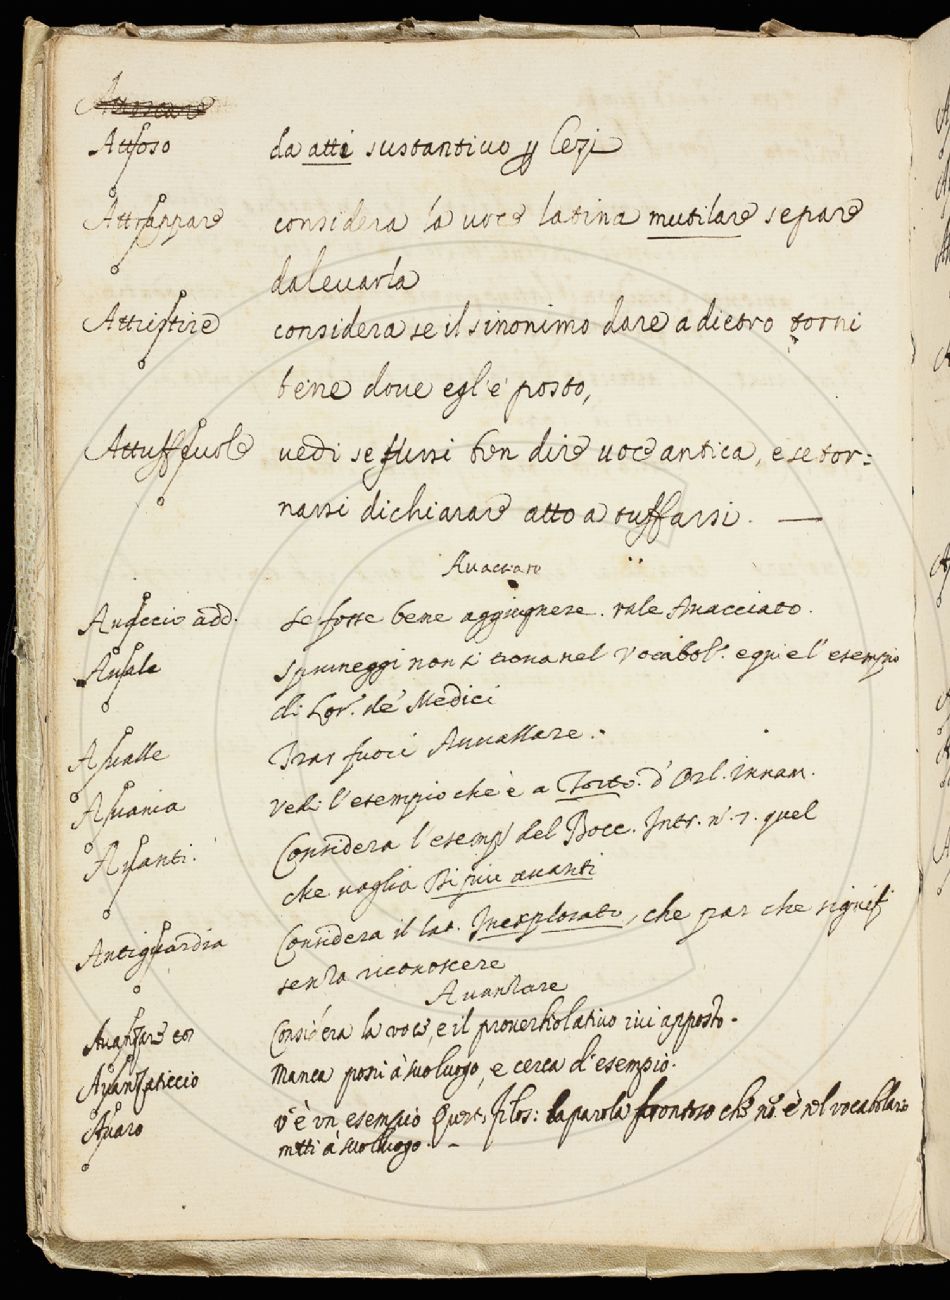 Attoso da atti sustantivo p Lezj
Attrappare considera la voce latina mutilare se pare
da levarla
Attristire considera se il sinonimo dare a dietro torni
bene dove egl'e' posto,
Attuffevole vedi se fussi ben dire voce antica, e se tor=
nassi dichiarare atto a tuffarsi. —
Avacciato
Avaccio add. se fosse bene aggiugnere. vale Avacciato.
Avale Spuneggi non si trova nel Vocabol.o e qui e l' esempio
di Lor.o de' Medici
Avalle Tras fuori Avvallare.
Avania Vedi l'esempio che è a Torto. d'Orl. Innam.
Avanti. Considera l'esemp.o del Bocc. Intr. n. 7. quel
che voglia Di più avanti
Antiguardia Considera il lat. Inexplorato, che par che signif
senza riconoscere
Avanzare
Avanzare Considera la voce, e il proverbio lativo ivi apposto.
Avanzaticcio Manca poni à suo luogo, e cerca d'esempio.
Avaro v'è un esempio la parola frontoso che nō è nel vocabolario
metti à suo luogo. —